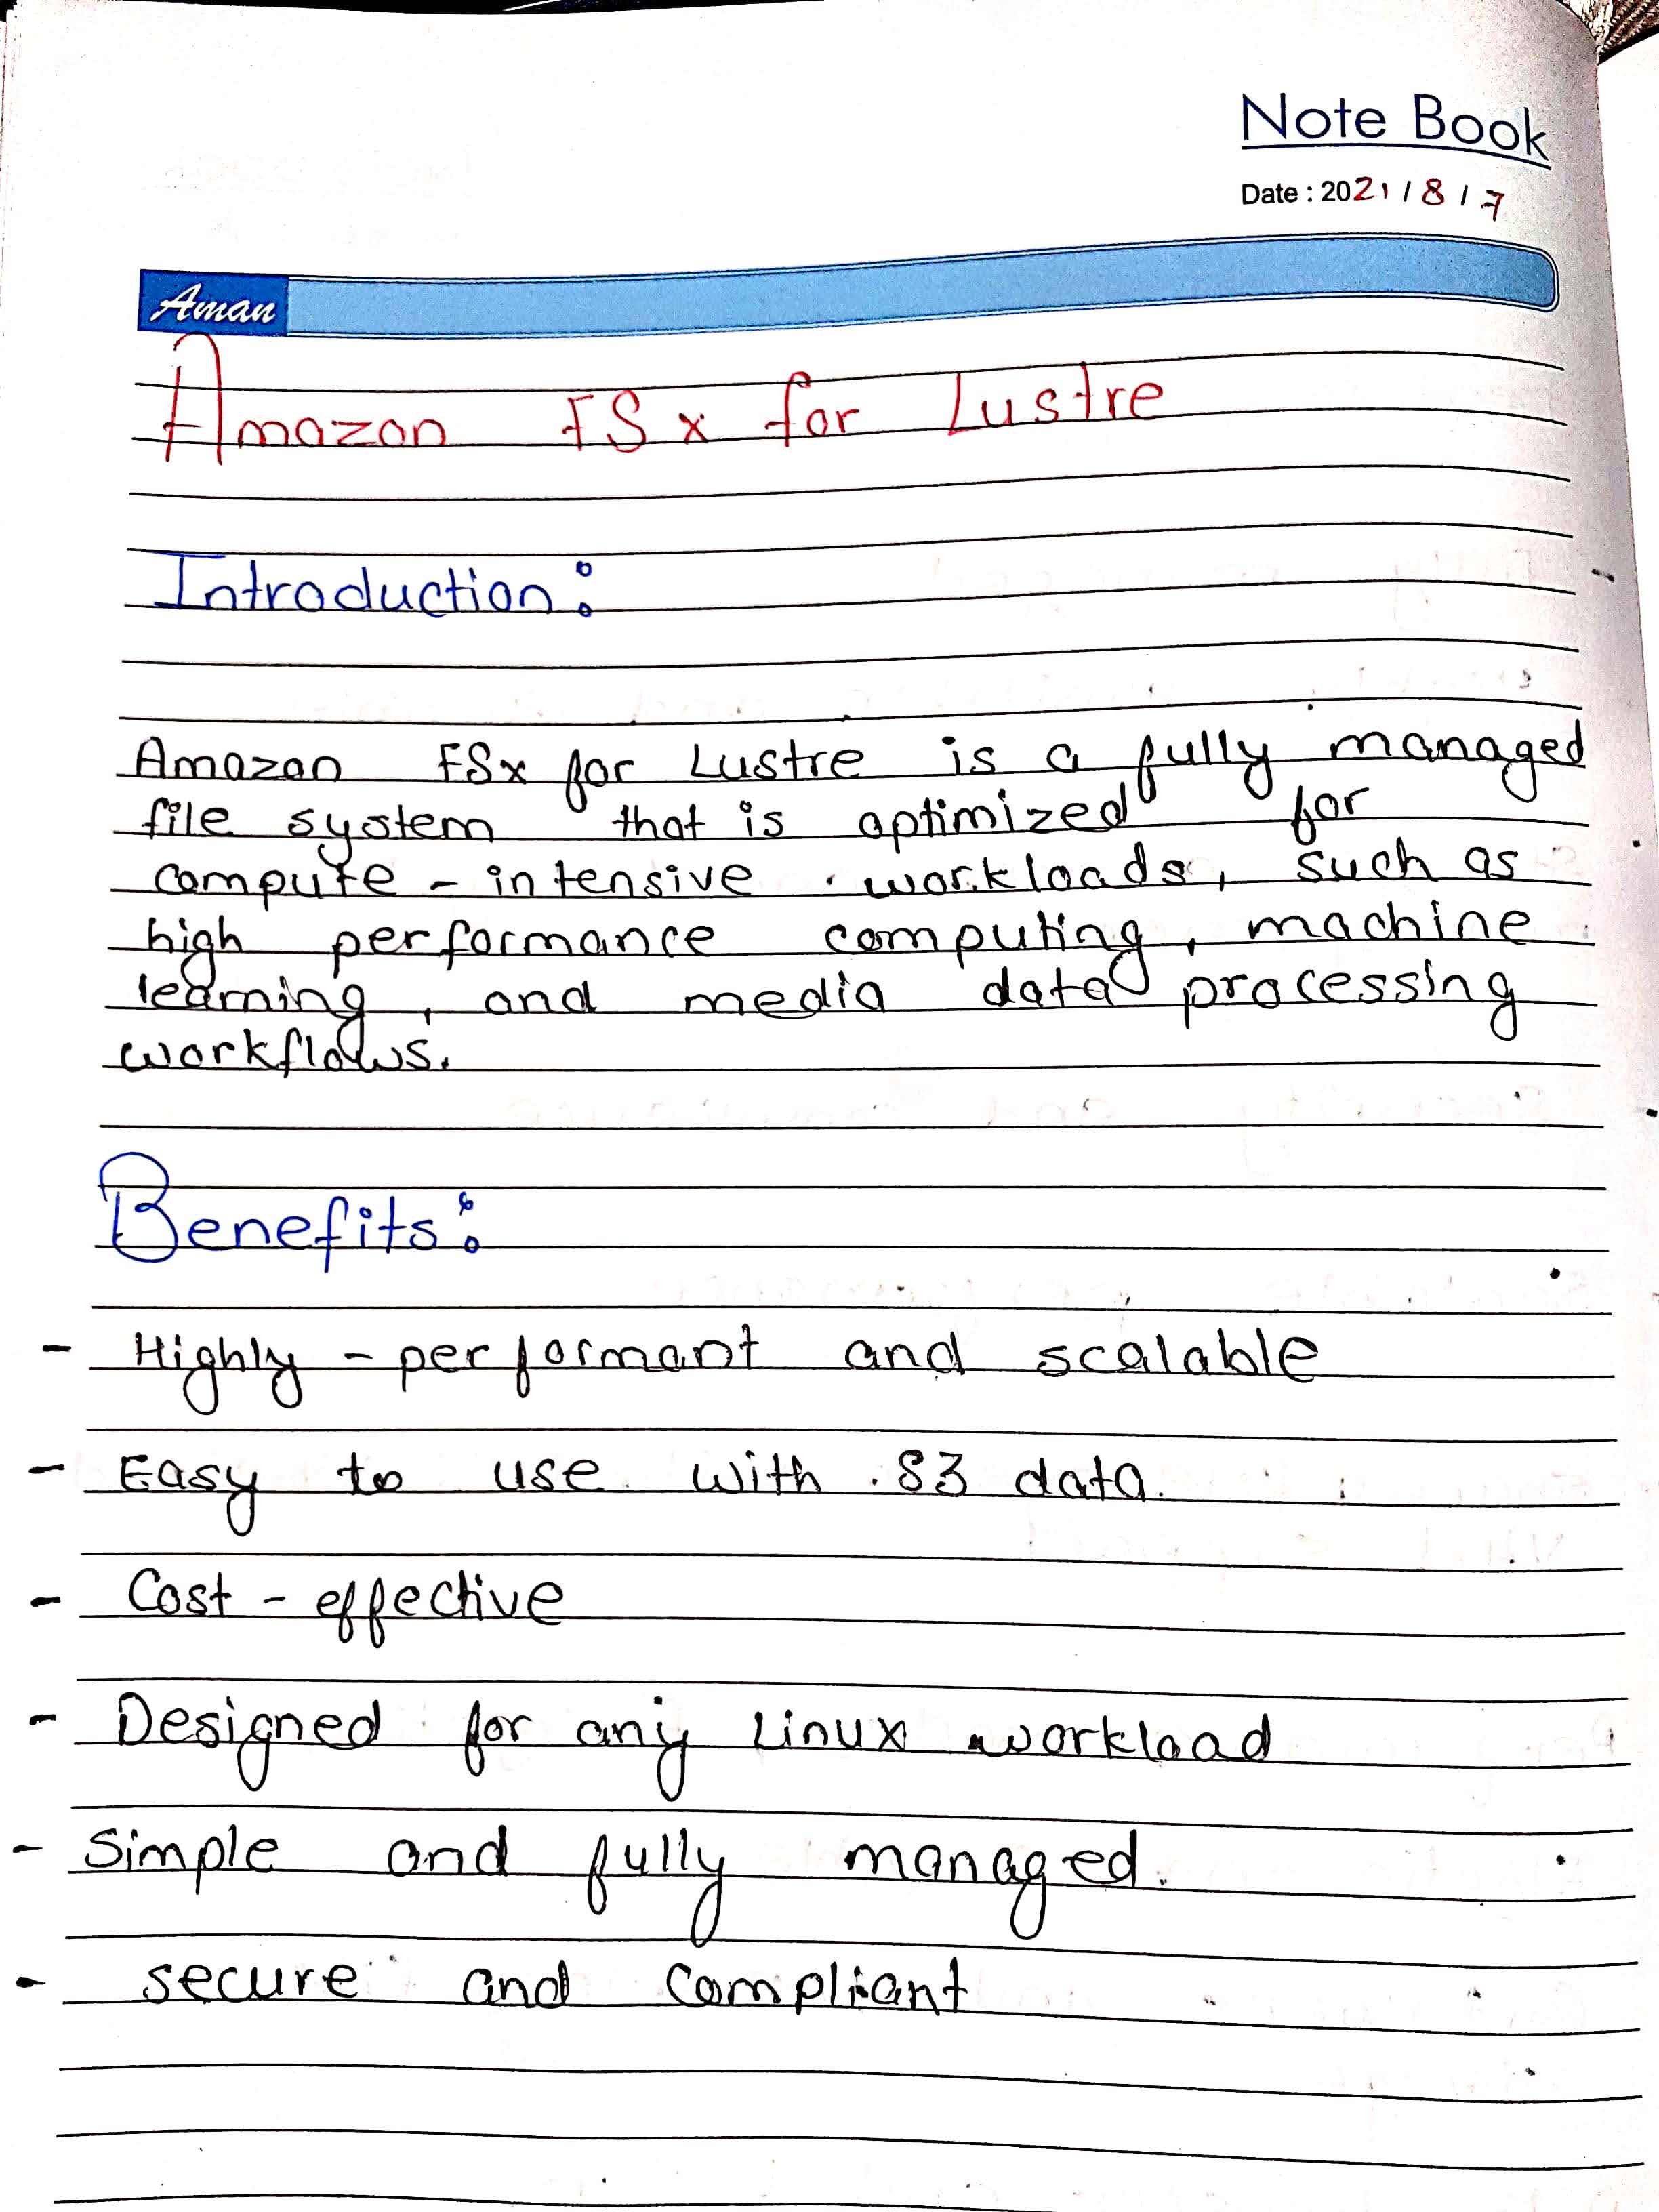 Note Book
Date : 2021 / 8 / 7
Aman
Amazon FSx for Lustre
Introduction:
Amazon FSx for Lustre is a fully managed
file system that is optimized for
compute - intensive workloads, such as
high performance computing, machine
learning, and media data processing
workflows.
Benefits:
- Highly - performant and scalable
- Easy to use with S3 data.
- Cost - effective
- Designed for any Linux workload
- Simple and fully managed.
- secure and compliant